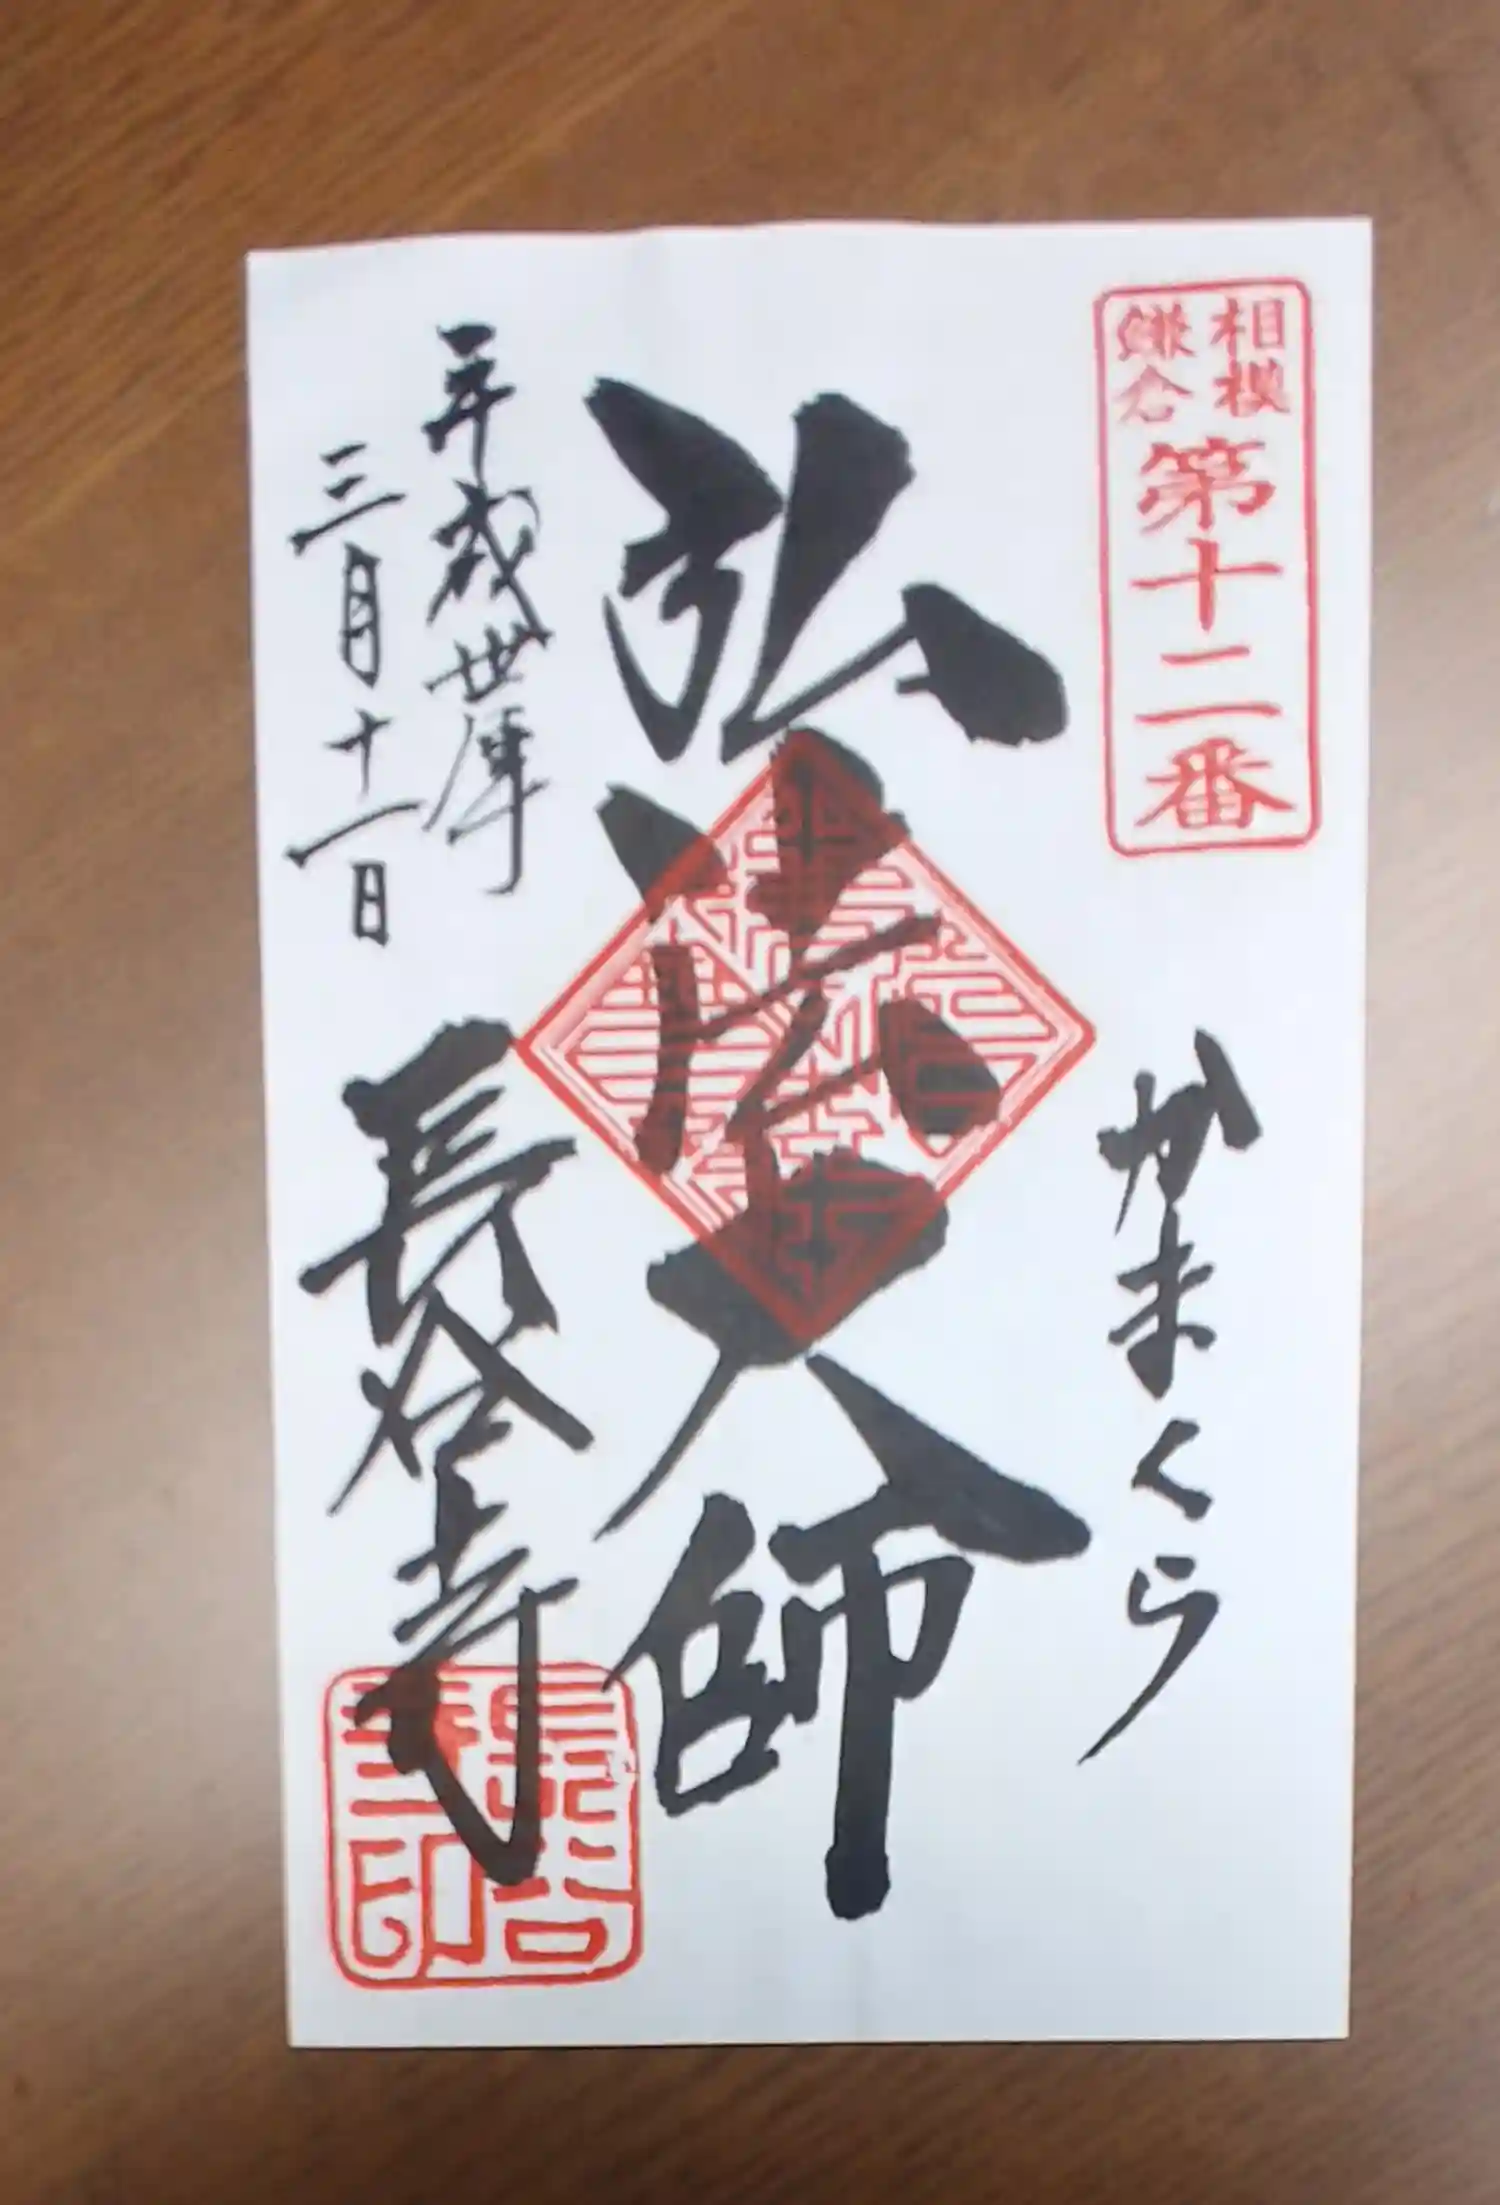 相模
鎌倉
第十二番
かまくら
弘法大師
平成丗年
三月十一日
長谷寺